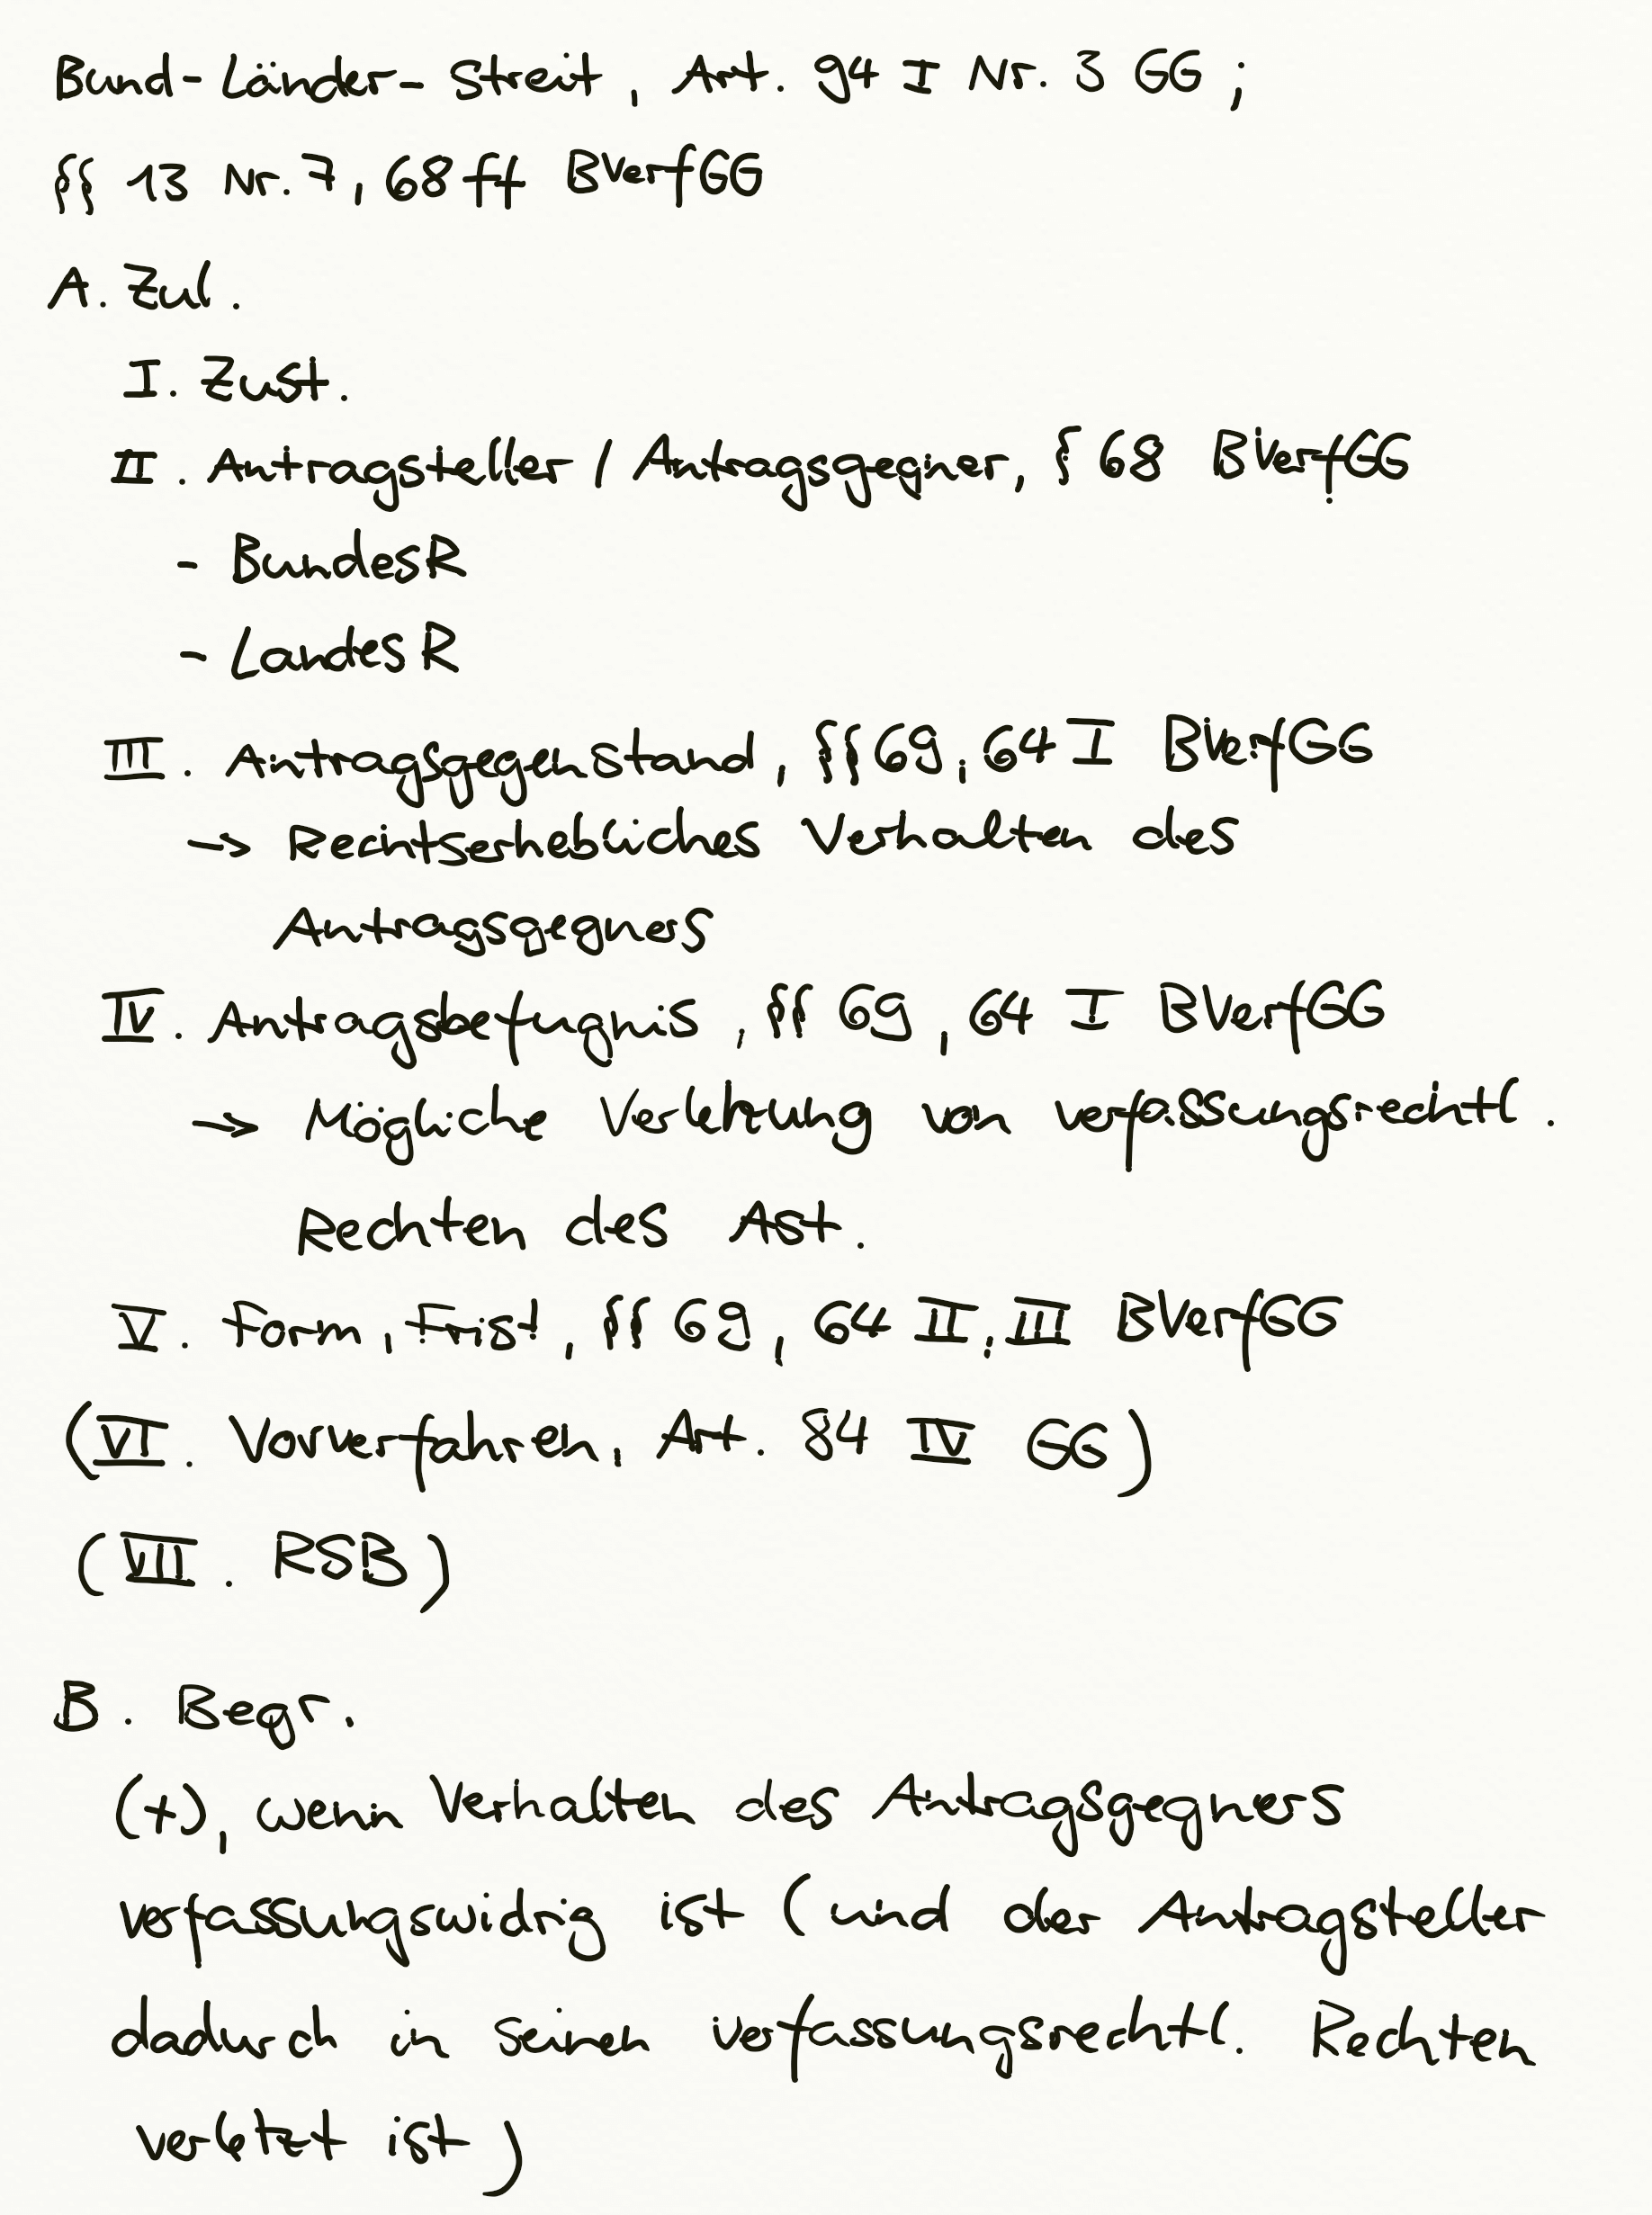 Bund-Länder-Streit, Art. 94 I Nr. 3 GG;
§§ 13 Nr. 7, 68 ff BVerfGG
A. Zul.
I. Zust.
II. Antragsteller / Antragsgegner, § 68 BVerfGG
- BundesR
- LandesR
III. Antragsgegenstand, §§ 69, 64 I BVerfGG
→ Rechtserhebliches Verhalten des
Antragsgegners
IV. Antragsbefugnis, §§ 69, 64 I BVerfGG
→ Mögliche Verletzung von verfassungsrechtl.
Rechten des Ast.
V. Form, Frist, §§ 69, 64 II, III BVerfGG
(VI. Vorverfahren, Art. 84 IV GG)
(VII. RSB)
B. Begr.
(+), wenn Verhalten des Antragsgegners
verfassungswidrig ist (und der Antragsteller
dadurch in seinen verfassungsrechtl. Rechten
verletzt ist)